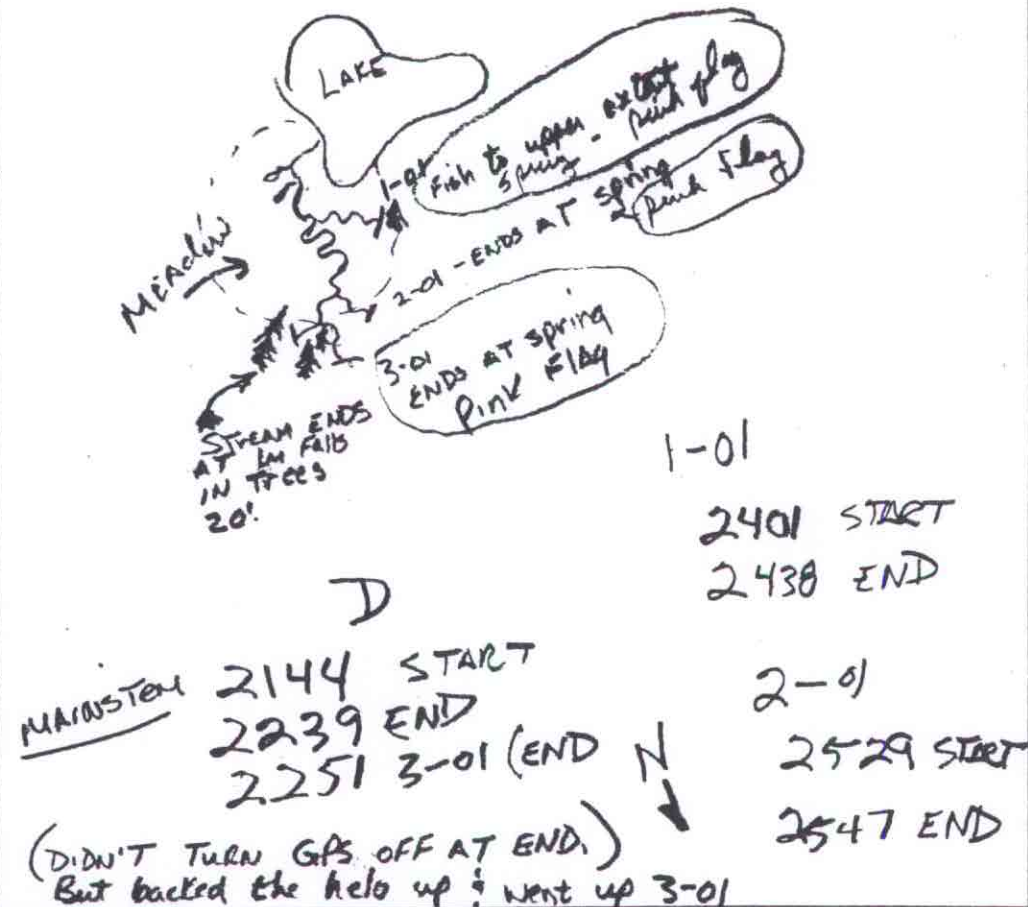 LAKE
1-01
Fish to upper extent
spring - pink flag
2-01 - ENDS AT spring
pink flag
MEADOW
3-01
ENDS AT spring
Pink Flag
STREAM ENDS
AT 1M FALLS
IN TREES
20'.
1-01
2401 START
2438 END
D
MAINSTEM 2144 START
2239 END
2251 3-01 (END
N
2-01
2529 START
2547 END
(DIDN'T TURN GPS OFF AT END.)
But backed the helo up & went up 3-01